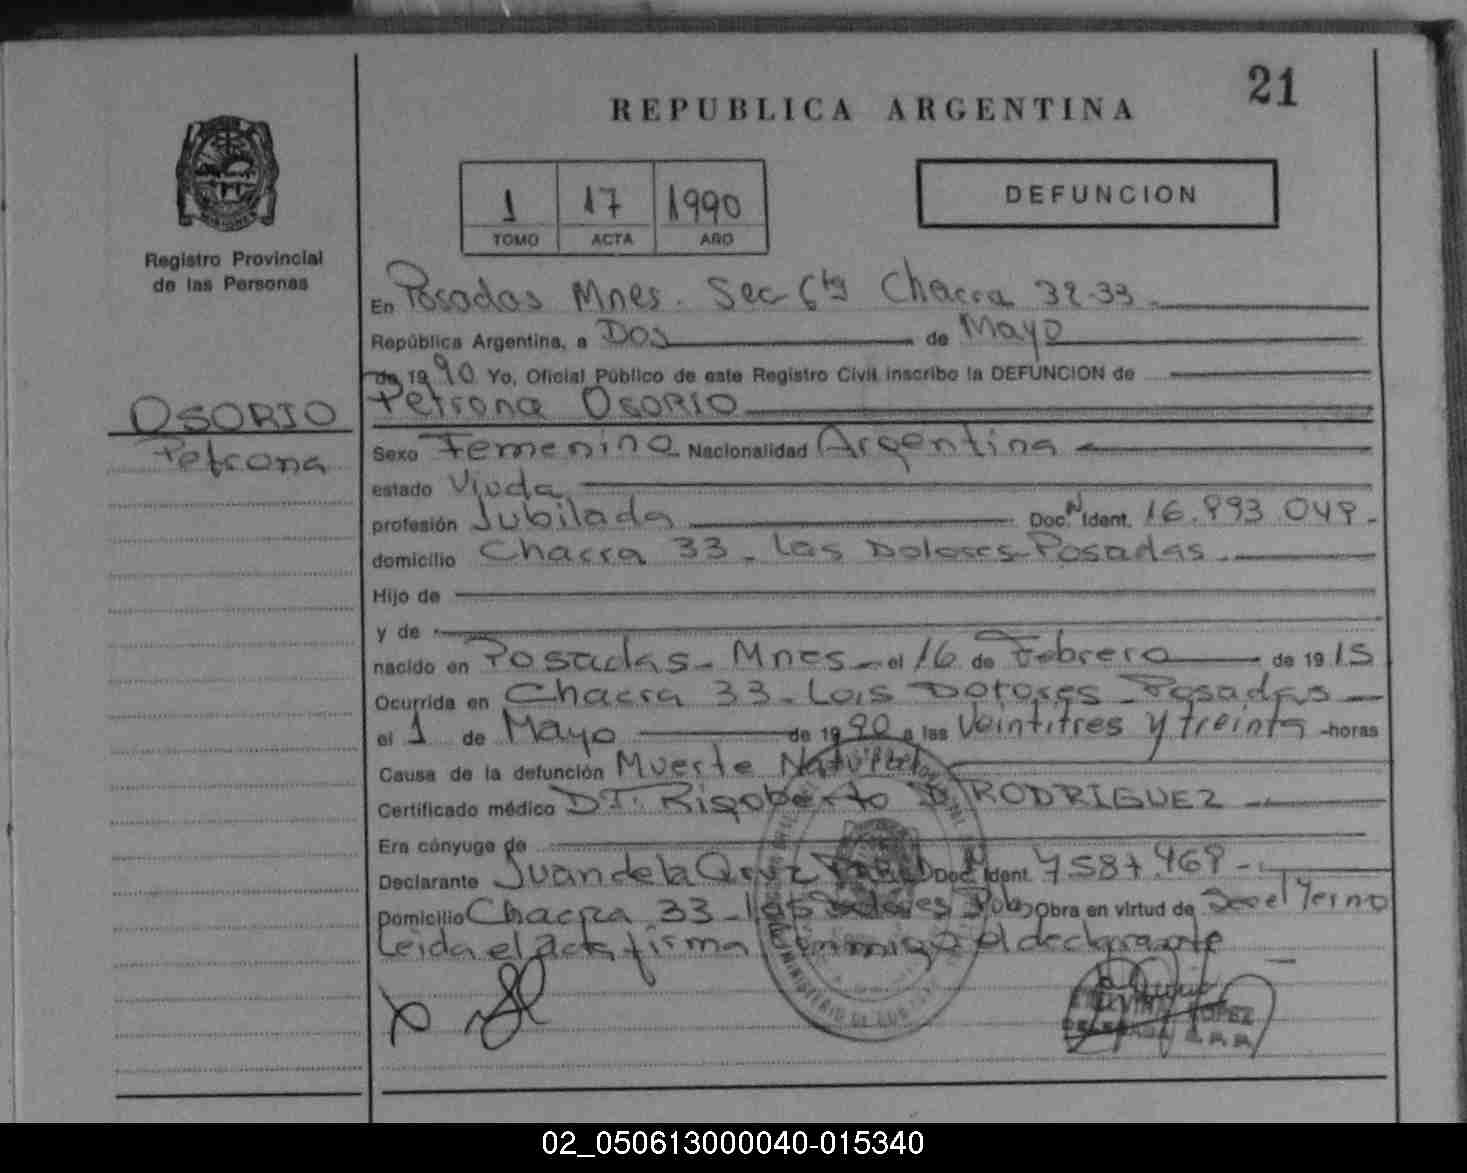 21
REPUBLICA ARGENTINA
1 17 1990
TOMO ACTA AÑO
DEFUNCION
Registro Provincial
de las Personas
OSORIO
Petrona
En Posadas Mnes. Sec 6ta Chacra 32-33
República Argentina, a Dos de Mayo
de 1990 Yo, Oficial Público de este Registro Civil inscribo la DEFUNCION de
Petrona OSORIO
Sexo Femenino Nacionalidad Argentina
estado Viuda
profesión Jubilada Doc. N Ident. 16.993 049.
domicilio Chacra 33 - Las Dolores - Posadas.
Hijo de
y de
nacido en Posadas - Mnes - el 16 de Febrero de 1915
Ocurrida en Chacra 33 - Las Dolores - Posadas
el 1 de Mayo de 1990 a las Veintitres y treinta -horas
Causa de la defunción Muerte Natural
Certificado médico Dr. Rigoberto RODRIGUEZ
Era cónyuge de
Declarante Juan de la Cruz Doc. N Ident. 7.587.469 -
Domicilio Chacra 33 - Las Dolores Obra en virtud de Ser el Yerno
Leida el acta firma conmigo el declarante
LOPEZ
MINISTERIO DE
02_050613000040-015340